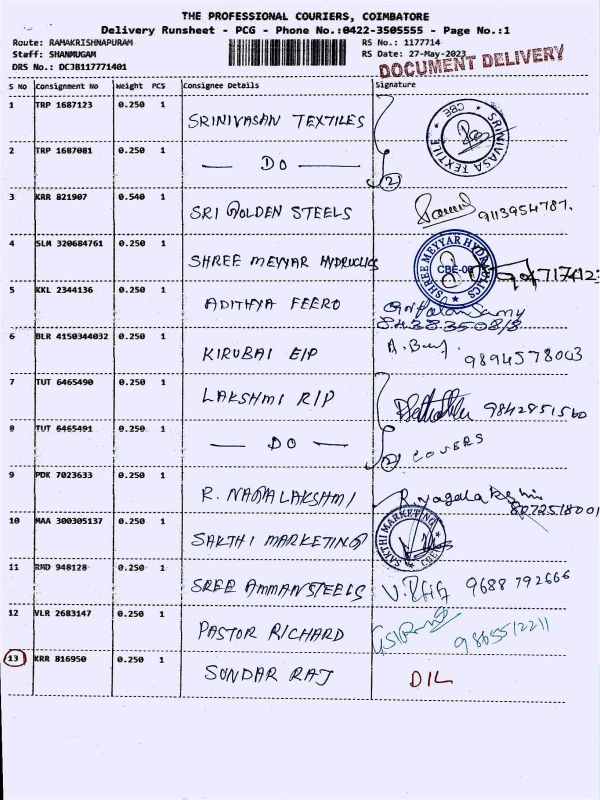 THE PROFESSIONAL COURIERS, COIMBATORE
Delivery Runsheet - PCG - Phone No.:0422-3505555 - Page No.:1
Route: RAMAKRISHNAPURAM RS No.: 1177714
Staff: SHANMUGAM RS Date: 27-May-2023
DRS No.: DCJB117771401 DOCUMENT DELIVERY
S No Consignment No Weight PCS Consignee Details Signature
1 TRP 1687123 0.250 1 SRINIVASAN TEXTILES SRINIVASA TEXTILE CBE
2 TRP 1687081 0.250 1 — DO — 2
3 KRR 821907 0.540 1 SRI GOLDEN STEELS 9113954787.
4 SLM 320684761 0.250 1 SHREE MEYYAR HYDRUCLICS SHREE MEYYAR HYDRAULICS CBE-06
5 KKL 2344136 0.250 1 ADITHYA FEERO
6 BLR 4150344032 0.250 1 KIRUBAI EIP 9894578003
7 TUT 6465490 0.250 1 LAKSHMI RIP 9842851560
8 TUT 6465491 0.250 1 — DO — 2 COVERS
9 PDK 7023633 0.250 1 R. NAGALAKSHMI R. Nagalakshmi
8072518001
10 MAA 300305137 0.250 1 SAKTHI MARKETING SAKTHI MARKETING
11 RMD 948128 0.250 1 SREE AMMAN STEELS 9688 792666
12 VLR 2683147 0.250 1 PASTOR RICHARD 9865512211
13 KRR 816950 0.250 1 SUNDAR RAJ DIL